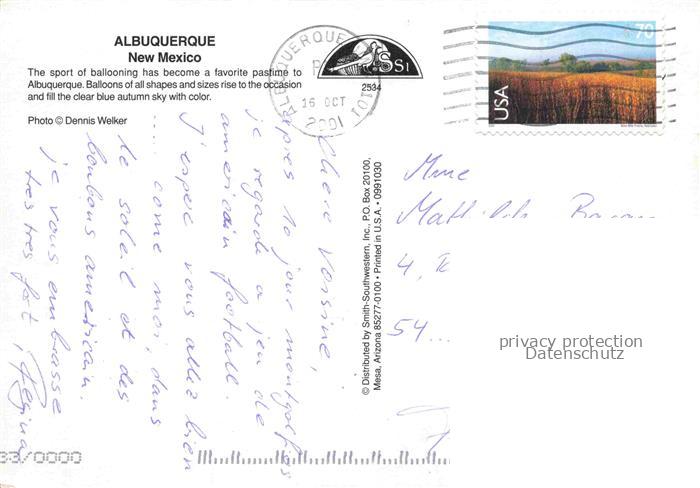 ALBUQUERQUE
New Mexico
The sport of ballooning has become a favorite pastime to
Albuquerque. Balloons of all shapes and sizes rise to the occasion
and fill the clear blue autumn sky with color.
Photo © Dennis Welker
ALBUQUERQUE
16 OCT
2001
SSI
2534
70
USA
Chere Voisine,
Apres 10 jour montgolfies
je regarde a jeu de
americain football.
J'espere vous allez bien
.... come moi, dans
le soleil et des
bonbons american.
je vous embrasse
tres tres fort, Regina
© Distributed by Smith-Southwestern, Inc., P.O. Box 20100,
Mesa, Arizona 85277-0100 • Printed in U.S.A. • 0991030
Mme
4,
54...
privacy protection
Datenschutz
33/0000